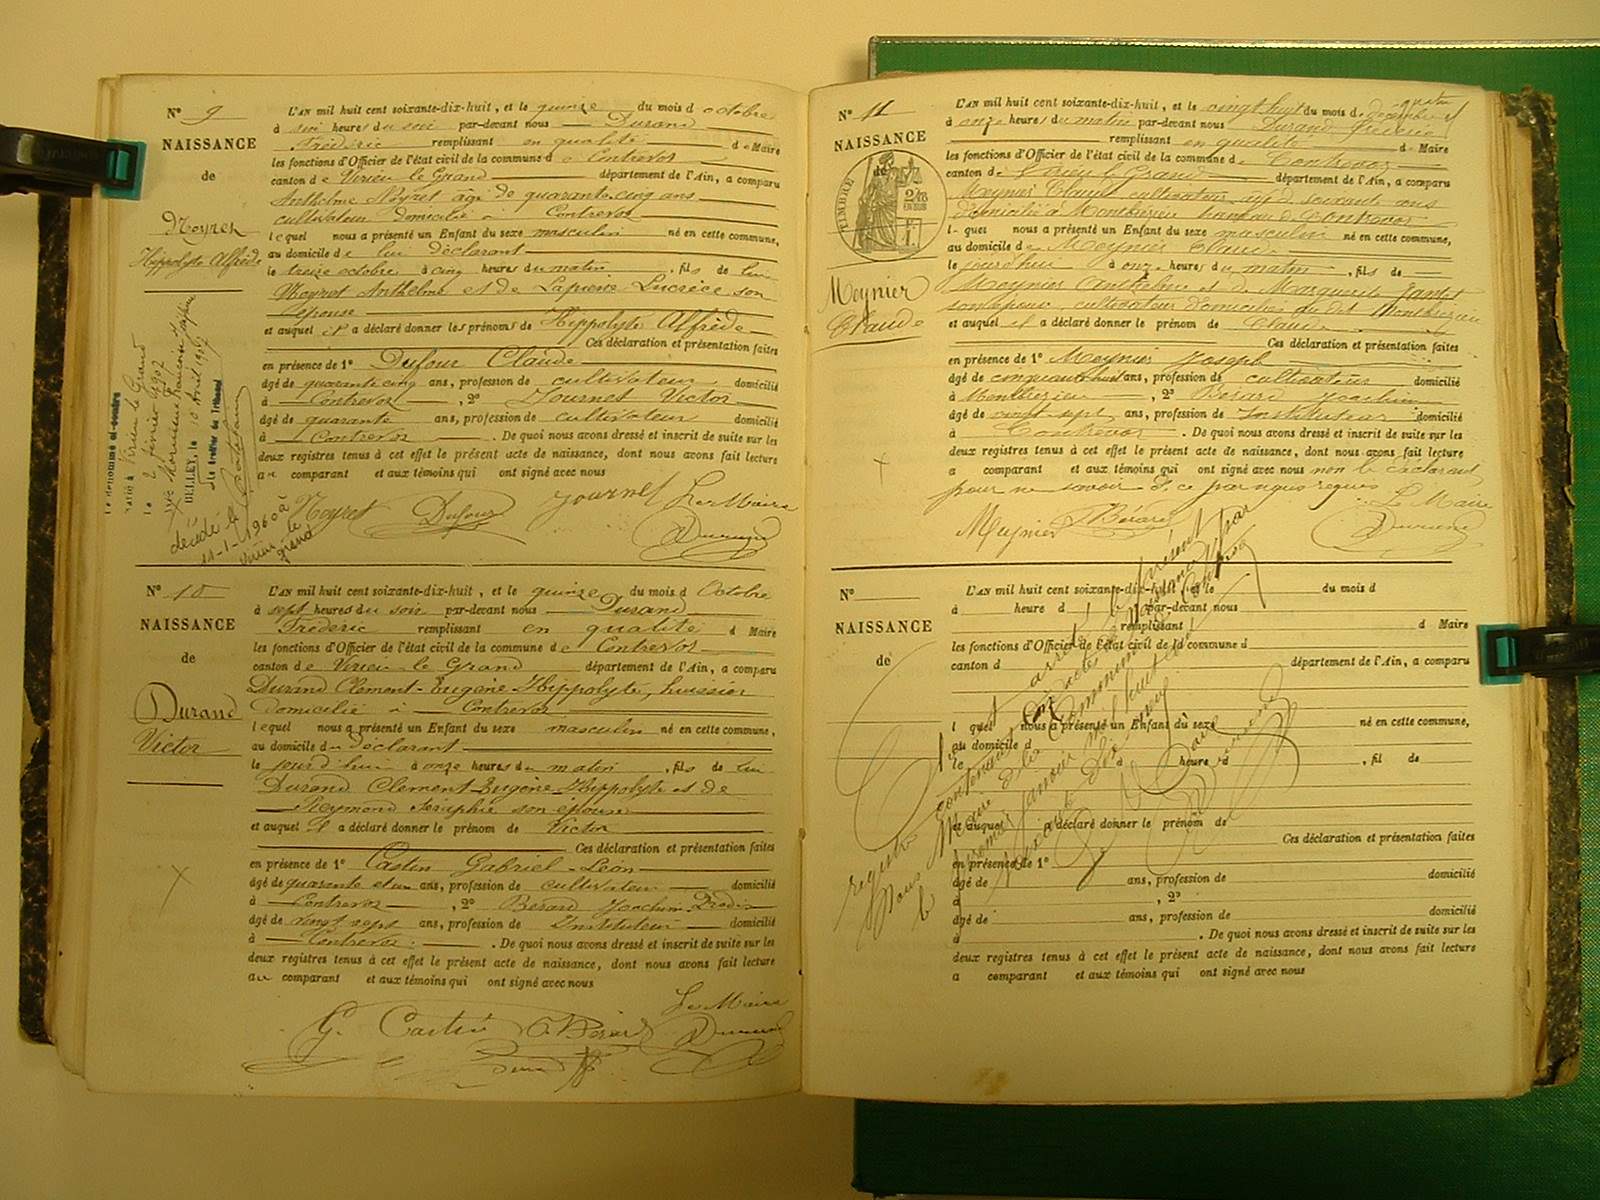 N° 9
NAISSANCE
de
Neyret
Hippolyte Alfrède
L'an mil huit cent soixante-dix-huit, et le quinze du mois d octobre
à six heures du soir par-devant nous Durand
Frédéric remplissant en qualité de Maire
les fonctions d'Officier de l'état civil de la commune de Contrevoz
canton de Virieu le Grand département de l'Ain, a comparu
Anthelme Neyret âgé de quarante-cinq ans
cultivateur domicilié à Contrevoz
lequel nous a présenté un Enfant du sexe masculin né en cette commune,
au domicile de lui déclarant
le treize octobre à cinq heures du matin, fils de lui
Neyret Anthelme et de Lapierre Lucrèce son
épouse
et auquel il a déclaré donner les prénoms de Hippolyte Alfrède
Ces déclaration et présentation faites
en présence de 1° Dufour Claude
âgé de quarante cinq ans, profession de cultivateur domicilié
à Contrevoz, 2° Journet Victor
âgé de quarante ans, profession de cultivateur domicilié
à Contrevoz. De quoi nous avons dressé et inscrit de suite sur les
deux registres tenus à cet effet le présent acte de naissance, dont nous avons fait lecture
au comparant et aux témoins qui ont signé avec nous
Neyret Dufour Journet Le Maire
Durand
Le dénommé ci-contre
marié à Virieu le Grand
le 2 février 1907
avec
BELLEY, le 10 Avril 1907
Le Greffier du Tribunal
décédé à
11-1-1960 à
Virieu le
grand
N° 10
NAISSANCE
de
Durand
Victor
L'an mil huit cent soixante-dix-huit, et le quinze du mois d Octobre
à sept heures du soir par-devant nous Durand
Frédéric remplissant en qualité d Maire
les fonctions d'Officier de l'état civil de la commune de Contrevoz
canton de Virieu le Grand département de l'Ain, a comparu
Durand Clement-Eugène-Hippolyte, huissier
domicilié à Contrevoz
lequel nous a présenté un Enfant du sexe masculin né en cette commune,
au domicile du déclarant
le jourd'hui à onze heures du matin, fils de lui
Durand Clement-Eugène-Hippolyte et de
Reymond Séraphie son épouse
et auquel il a déclaré donner le prénom de Victor
Ces déclaration et présentation faites
en présence de 1° Castin Gabriel-Léon
âgé de quarante et un ans, profession de cultivateur domicilié
à Contrevoz, 2° Bérard Joachim
âgé de vingt sept ans, profession de Instituteur domicilié
à Contrevoz. De quoi nous avons dressé et inscrit de suite sur les
deux registres tenus à cet effet le présent acte de naissance, dont nous avons fait lecture
au comparant et aux témoins qui ont signé avec nous
Le Maire
G. Castin Bérard Durand
Durand
N° 11
NAISSANCE
de
TIMBRE
Meynier
Claude
L'an mil huit cent soixante-dix-huit, et le vingt huit du mois de décembre
à onze heures du matin par-devant nous Durand Frédéric
remplissant en qualité de Maire
les fonctions d'Officier de l'état civil de la commune de Contrevoz
canton de Virieu le Grand département de l'Ain, a comparu
Meynier Claude cultivateur âgé de soixante ans
domicilié à Montbrezieu hameau de Contrevoz
lequel nous a présenté un Enfant du sexe masculin né en cette commune,
au domicile de Meynier Claude
le jourd'hui à onze heures du matin, fils de
Meynier Anthelme et de Marguerite
son épouse cultivateur domiciliés au dit Montbrezieu
et auquel il a déclaré donner le prénom de Claude
Ces déclaration et présentation faites
en présence de 1° Meynier Joseph
âgé de cinquante huit ans, profession de cultivateur domicilié
à Montbrezieu, 2° Bérard Joachim
âgé de vingt sept ans, profession de Instituteur domicilié
à Contrevoz. De quoi nous avons dressé et inscrit de suite sur les
deux registres tenus à cet effet le présent acte de naissance, dont nous avons fait lecture
a comparant et aux témoins qui ont signé avec nous non le déclarant
pour ne savoir de ce par nous requis
Le Maire
Meynier Bérard Durand
N°
NAISSANCE
de
L'an mil huit cent soixante-dix-huit, et le du mois d
à heure d par-devant nous
remplissant d Maire
les fonctions d'Officier de l'état civil de la commune d
canton d département de l'Ain, a comparu
l quel nous a présenté un Enfant du sexe né en cette commune,
au domicile d
le à heure d, fil de
et auquel a déclaré donner le prénom de
Ces déclaration et présentation faites
en présence de 1°
âgé de ans, profession de domicilié
à, 2°
âgé de ans, profession de domicilié
à. De quoi nous avons dressé et inscrit de suite sur les
deux registres tenus à cet effet le présent acte de naissance, dont nous avons fait lecture
a comparant et aux témoins qui ont signé avec nous
arrêté le présent
registre contenant onze actes de naissance par
Nous Maire de la Commune de Contrevoz
le premier janvier mil huit cent
soixante dix neuf
Le Maire
Durand